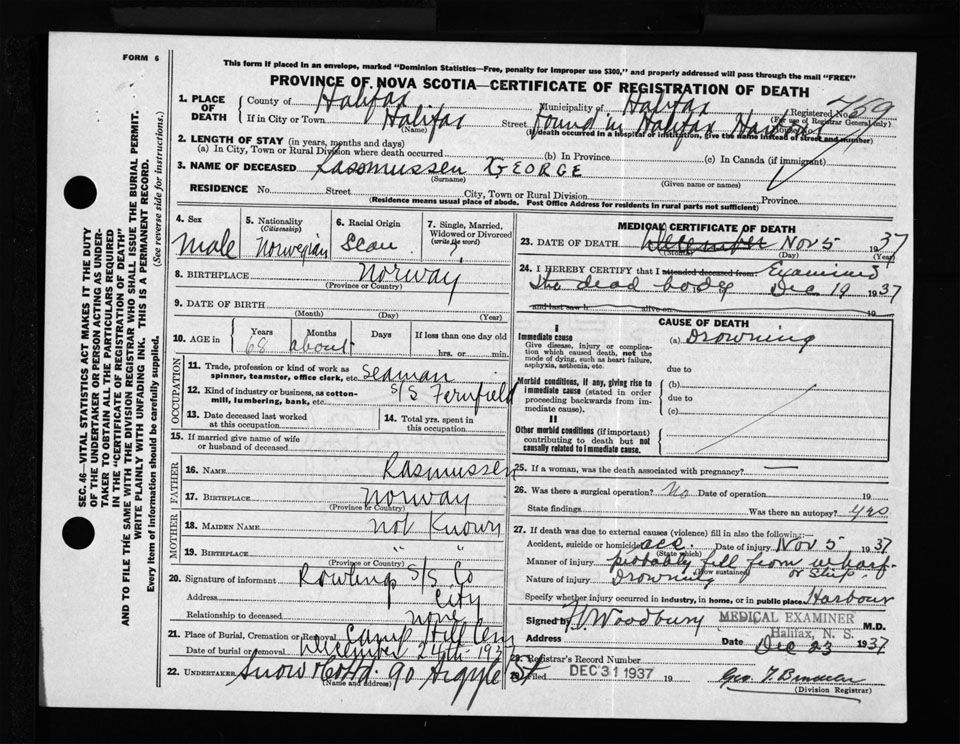 FORM 6
This form if placed in an envelope, marked "Dominion Statistics—Free, penalty for improper use $300," and properly addressed will pass through the mail "FREE"
PROVINCE OF NOVA SCOTIA—CERTIFICATE OF REGISTRATION OF DEATH
1. PLACE OF DEATH
County of Halifax Municipality of Halifax Registered No. 759
(For use of Registrar General only)
If in City or Town Halifax Street found in Halifax Harbour House No.
(Name) (If death occurred in a hospital or institution, give the name instead of street and number)
2. LENGTH OF STAY (in years, months and days)
(a) In City, Town or Rural Division where death occurred (b) In Province (c) In Canada (if immigrant)
3. NAME OF DECEASED Rasmussen GEORGE
(Surname) (Given name or names)
RESIDENCE No. Street City, Town or Rural Division Province
(Residence means usual place of abode. Post Office Address for residents in rural parts not sufficient)
4. Sex male
5. Nationality (Citizenship) Norwegian
6. Racial Origin Scan
7. Single, Married, Widowed or Divorced (write the word) ?
8. BIRTHPLACE Norway
(Province or Country)
9. DATE OF BIRTH
(Month) (Day) (Year)
10. AGE in Years 68 Months about Days If less than one day old hrs. or min.
OCCUPATION
11. Trade, profession or kind of work as spinner, teamster, office clerk, etc. Seaman
12. Kind of industry or business, as cotton-mill, lumbering, bank, etc. S/S Fernfield
13. Date deceased last worked at this occupation
14. Total yrs. spent in this occupation
15. If married give name of wife or husband of deceased
FATHER
16. NAME Rasmussen
17. BIRTHPLACE Norway
(Province or Country)
MOTHER
18. MAIDEN NAME not Known
19. BIRTHPLACE " "
(Province or Country)
20. Signature of informant Rowlings S/S Co
Address City
Relationship to deceased none
21. Place of Burial, Cremation or Removal Camp Hill Cem
Date of burial or removal December 24th 1937
22. UNDERTAKER Snow & Co Ltd. 90 Argyle St
(Name and Address)
MEDICAL CERTIFICATE OF DEATH
23. DATE OF DEATH December Nov 5 1937
(Month) (Day) (Year)
24. I HEREBY CERTIFY that I attended deceased from Examined
the dead body Dec 19 1937
and last saw h alive on 19
CAUSE OF DEATH
I
Immediate cause
Give disease, injury or complication which caused death, not the mode of dying, such as heart failure, asphyxia, asthenia, etc.
(a) Drowning
due to
Morbid conditions, if any, giving rise to immediate cause (stated in order proceeding backwards from immediate cause).
(b)
due to
(c)
II
Other morbid conditions (if important) contributing to death but not causally related to immediate cause.
25. If a woman, was the death associated with pregnancy? —
26. Was there a surgical operation? No Date of operation 19
State findings Was there an autopsy? yes
27. If death was due to external causes (violence) fill in also the following:—
Accident, suicide or homicide acc. Date of injury Nov 5 1937
(State which)
Manner of injury probably fell from wharf
(How sustained)
Nature of injury Drowning or Ship.
Specify whether injury occurred in industry, in home, or in public place. Harbour
Signed by Woodbury MEDICAL EXAMINER M.D.
Halifax, N. S.
Address Date Dec 23 1937
28. Registrar's Record Number
Filed DEC 31 1937 19
(Division Registrar)
SEC. 46—VITAL STATISTICS ACT MAKES IT THE DUTY
OF THE UNDERTAKER OR PERSON ACTING AS UNDER-
TAKER TO OBTAIN ALL THE PARTICULARS REQUIRED
IN THE "CERTIFICATE OF REGISTRATION OF DEATH"
AND TO FILE THE SAME WITH THE DIVISION REGISTRAR WHO SHALL ISSUE THE BURIAL PERMIT.
WRITE PLAINLY WITH UNFADING INK. THIS IS A PERMANENT RECORD.
Every item of information should be carefully supplied. (See reverse side for instructions.)